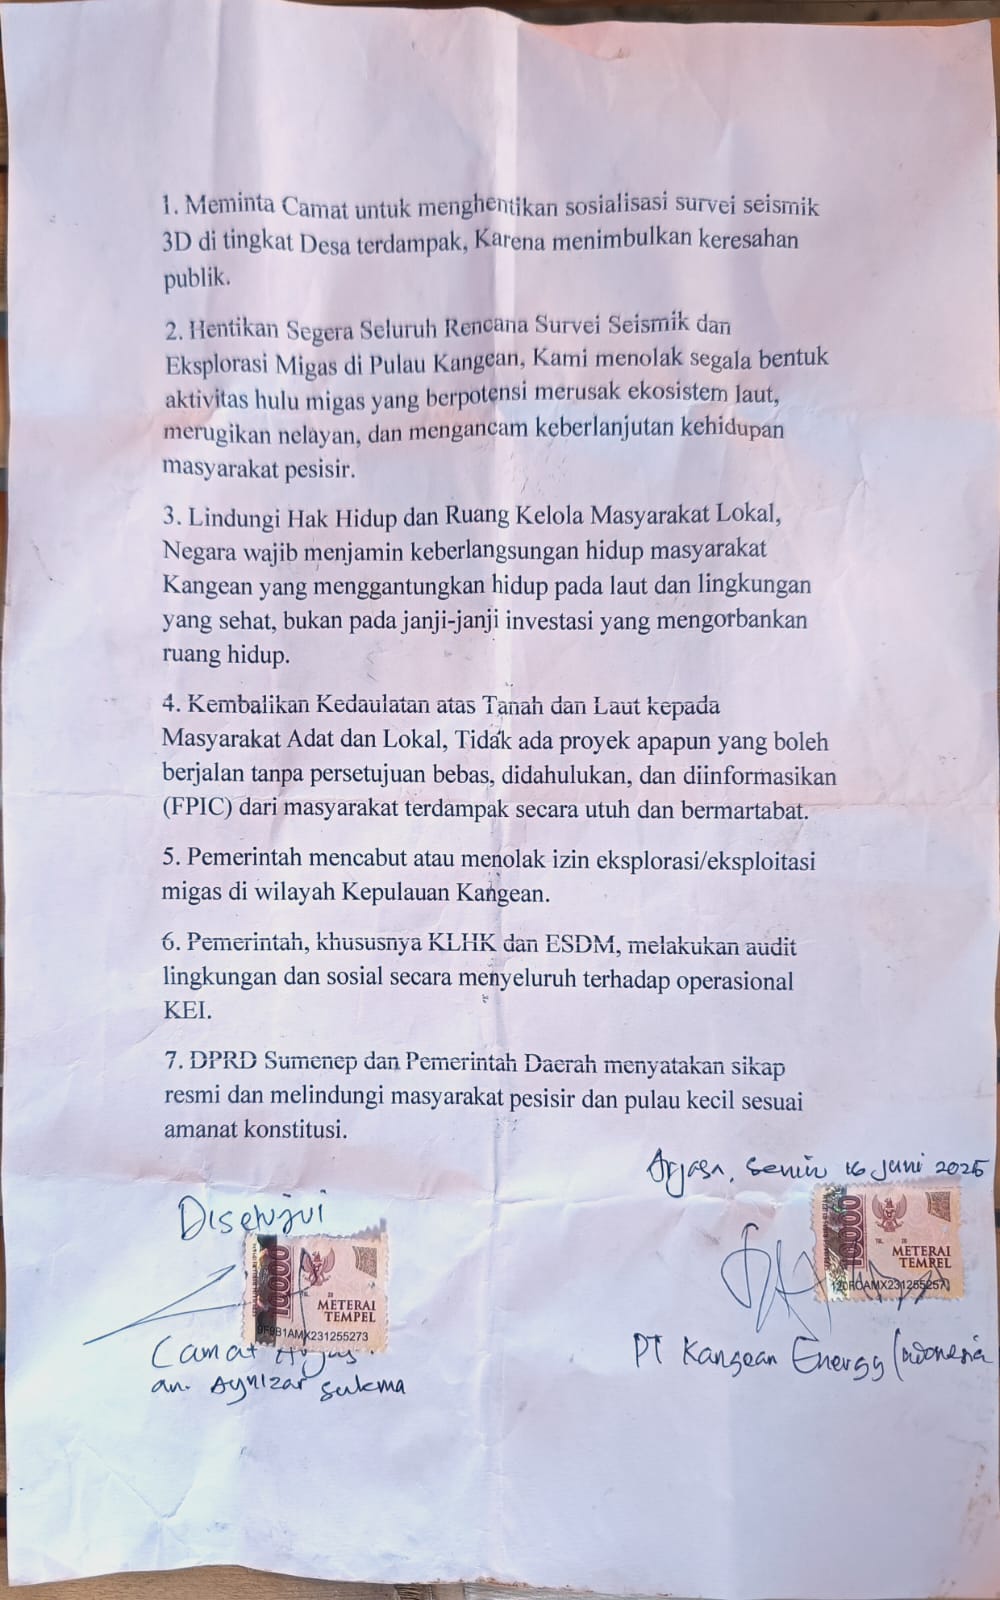 1. Meminta Camat untuk menghentikan sosialisasi survei seismik
3D di tingkat Desa terdampak, Karena menimbulkan keresahan
publik.
2. Hentikan Segera Seluruh Rencana Survei Seismik dan
Eksplorasi Migas di Pulau Kangean, Kami menolak segala bentuk
aktivitas hulu migas yang berpotensi merusak ekosistem laut,
merugikan nelayan, dan mengancam keberlanjutan kehidupan
masyarakat pesisir.
3. Lindungi Hak Hidup dan Ruang Kelola Masyarakat Lokal,
Negara wajib menjamin keberlangsungan hidup masyarakat
Kangean yang menggantungkan hidup pada laut dan lingkungan
yang sehat, bukan pada janji-janji investasi yang mengorbankan
ruang hidup.
4. Kembalikan Kedaulatan atas Tanah dan Laut kepada
Masyarakat Adat dan Lokal, Tidak ada proyek apapun yang boleh
berjalan tanpa persetujuan bebas, didahulukan, dan diinformasikan
(FPIC) dari masyarakat terdampak secara utuh dan bermartabat.
5. Pemerintah mencabut atau menolak izin eksplorasi/eksploitasi
migas di wilayah Kepulauan Kangean.
6. Pemerintah, khususnya KLHK dan ESDM, melakukan audit
lingkungan dan sosial secara menyeluruh terhadap operasional
KEI.
7. DPRD Sumenep dan Pemerintah Daerah menyatakan sikap
resmi dan melindungi masyarakat pesisir dan pulau kecil sesuai
amanat konstitusi.
Arjasa, Senin 16 Juni 2025
Disetujui
10000
METERAI
TEMPEL
231255273
Camat
an. Aynizar Sukma
10000
METERAI
TEMPEL
231255257
PT Kangean Energy Indonesia